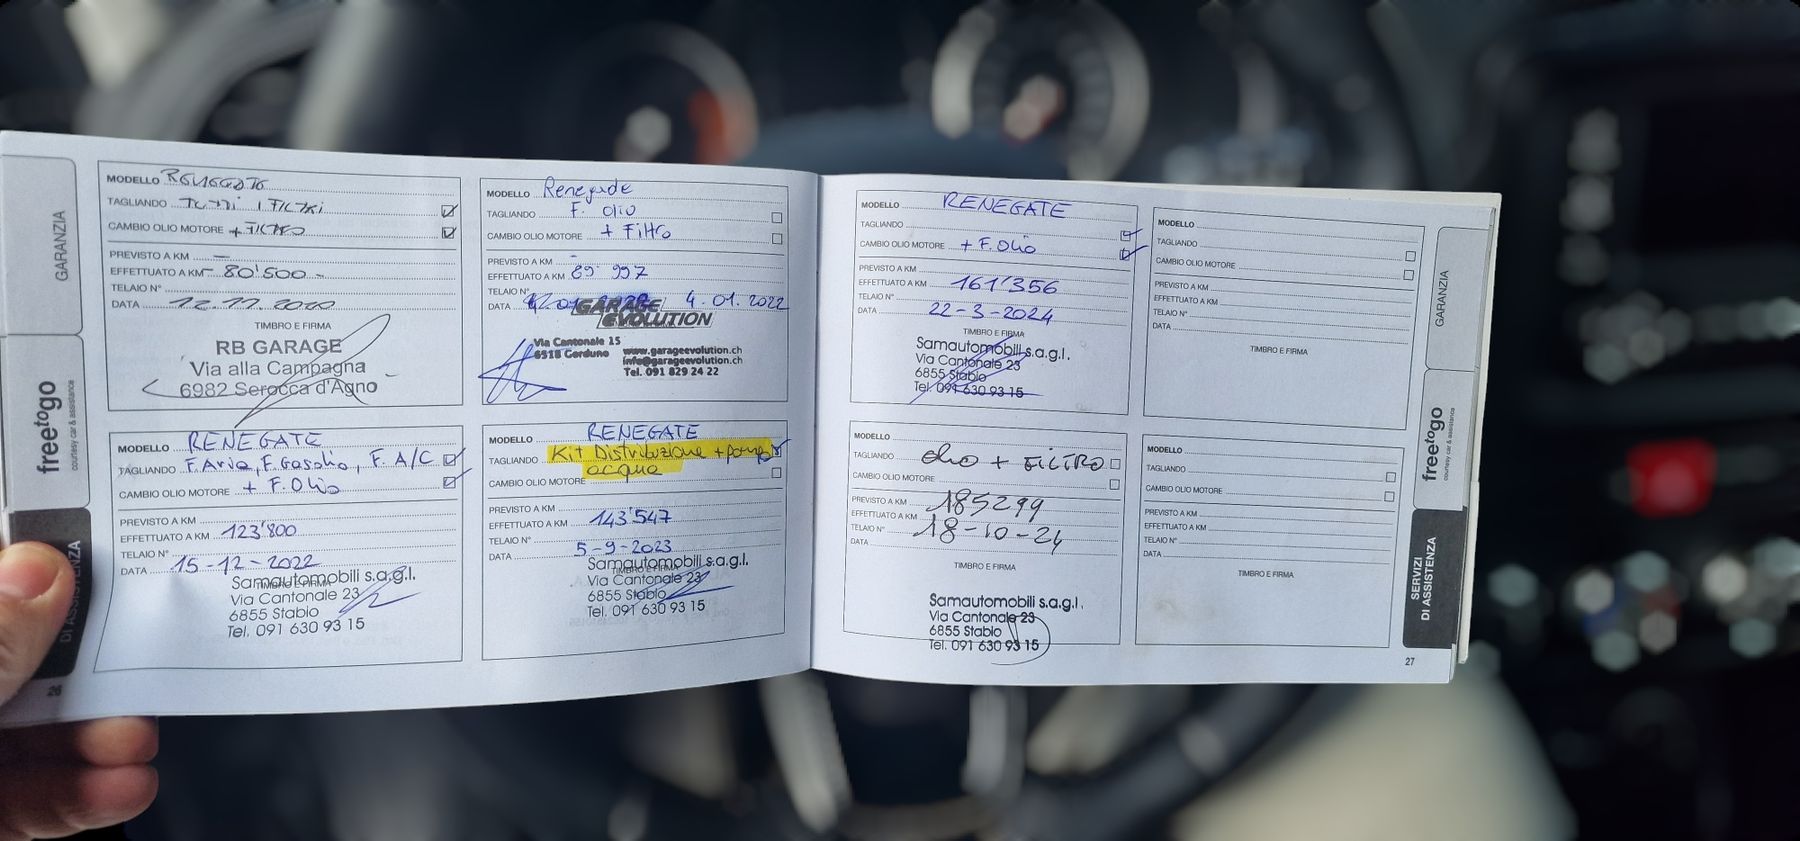 GARANZIA
freetogo
courtesy car & assistance
DI ASSISTENZA
26
MODELLO RENEGATE
TAGLIANDO TUTTI I FILTRI
CAMBIO OLIO MOTORE + FILTRO
PREVISTO A KM —
EFFETTUATO A KM - 80'500 -
TELAIO N°
DATA 12.11.2020
TIMBRO E FIRMA
RB GARAGE
Via alla Campagna
6982 Serocca d'Agno
MODELLO Renegade
TAGLIANDO F. olio
CAMBIO OLIO MOTORE + Filtro
PREVISTO A KM -
EFFETTUATO A KM 89'997
TELAIO N°
DATA 4.01.2022
GARAGE
EVOLUTION
Via Cantonale 15
6518 Gorduno www.garageevolution.ch
info@garageevolution.ch
Tel. 091 829 24 22
MODELLO RENEGATE
TAGLIANDO F. Aria, F. Gasolio, F. A/C
CAMBIO OLIO MOTORE + F. Olio
PREVISTO A KM
EFFETTUATO A KM 123'800
TELAIO N°
DATA 15-12-2022
TIMBRO E FIRMA
Samautomobili s.a.g.l.
Via Cantonale 23
6855 Stabio
Tel. 091 630 93 15
MODELLO RENEGATE
TAGLIANDO Kit Distribuzione + pompa
acqua
CAMBIO OLIO MOTORE
PREVISTO A KM
EFFETTUATO A KM 143'547
TELAIO N°
DATA 5-9-2023
TIMBRO E FIRMA
Samautomobili s.a.g.l.
Via Cantonale 23
6855 Stabio
Tel. 091 630 93 15
MODELLO RENEGATE
TAGLIANDO
CAMBIO OLIO MOTORE + F. Olio
PREVISTO A KM
EFFETTUATO A KM 161'356
TELAIO N°
DATA 22-3-2024
TIMBRO E FIRMA
Samautomobili s.a.g.l.
Via Cantonale 23
6855 Stabio
Tel. 091 630 93 15
MODELLO
TAGLIANDO
CAMBIO OLIO MOTORE
PREVISTO A KM
EFFETTUATO A KM
TELAIO N°
DATA
TIMBRO E FIRMA
MODELLO
TAGLIANDO olio + FILTRO
CAMBIO OLIO MOTORE
PREVISTO A KM
EFFETTUATO A KM 185299
TELAIO N° 18-10-24
DATA
TIMBRO E FIRMA
Samautomobili s.a.g.l.
Via Cantonale 23
6855 Stabio
Tel. 091 630 93 15
MODELLO
TAGLIANDO
CAMBIO OLIO MOTORE
PREVISTO A KM
EFFETTUATO A KM
TELAIO N°
DATA
TIMBRO E FIRMA
GARANZIA
freetogo
courtesy car & assistance
SERVIZI
DI ASSISTENZA
27